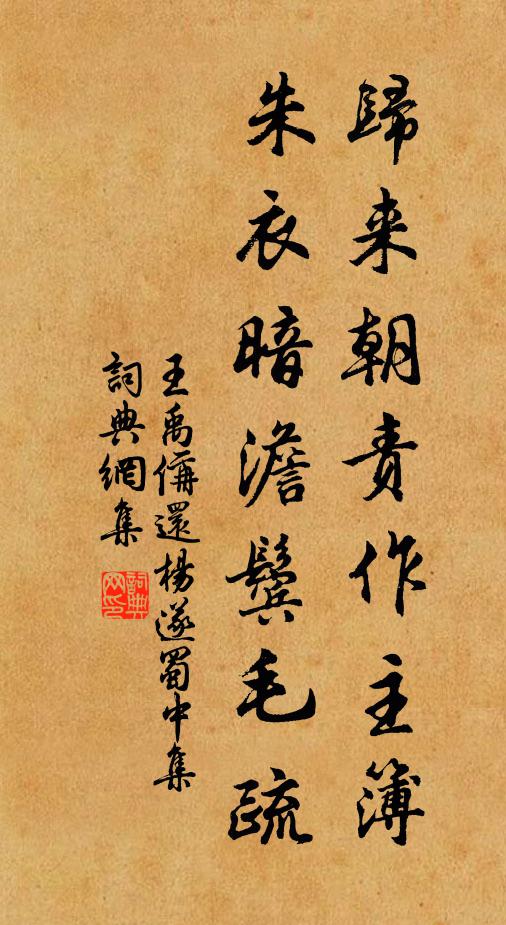 歸来朝責作主簿
朱衣暗澹鬢毛疏
王禹偁還楊遂蜀中集
詞典網集
詞典网印